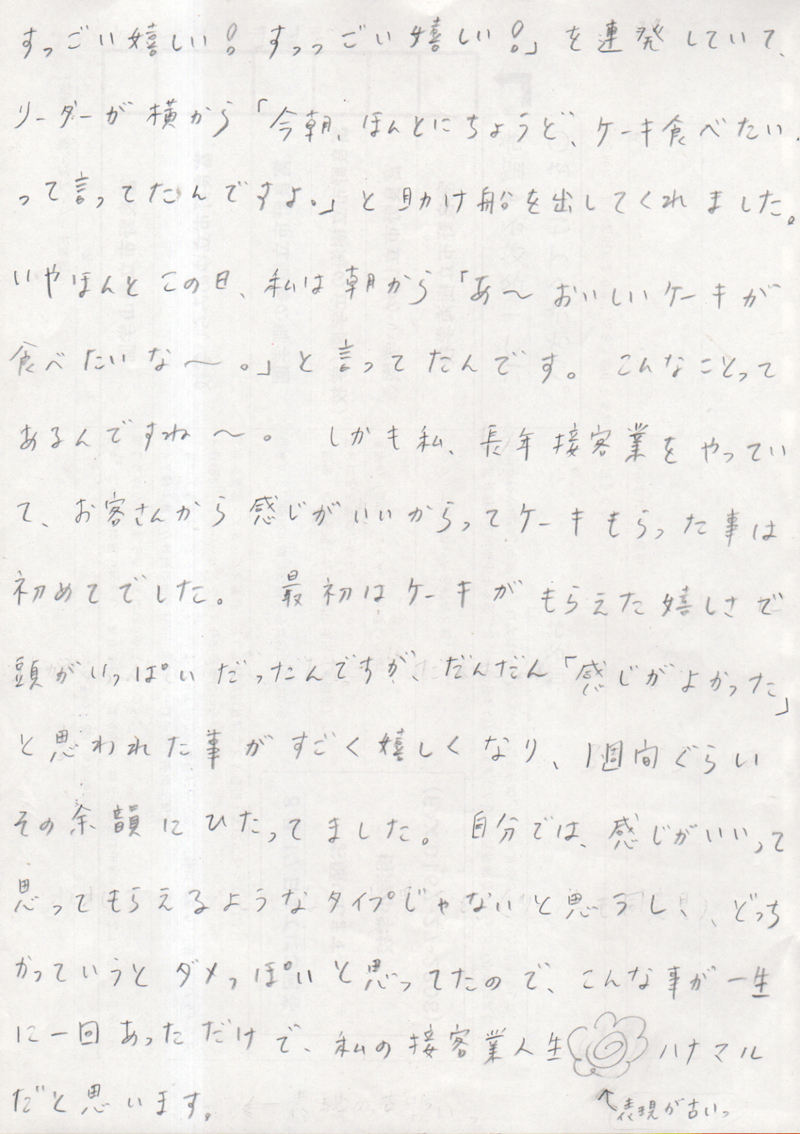 すっごい嬉しい！すっっごい嬉しい！」を連発していて、
リーダーが横から「今朝、ほんとにちょうど、ケーキ食べたい、
って言ってたんですよ。」と助け船を出してくれました。
いやほんとこの日、私は朝から「あ〜おいしいケーキが
食べたいな〜。」と言ってたんです。こんなことって
あるんですね〜。しかも私、長年接客業をやってい
て、お客さんから感じがいいからってケーキもらった事は
初めてでした。最初はケーキがもらえた嬉しさで
頭がいっぱいだったんですが、だんだん「感じがよかった」
と思われた事がすごく嬉しくなり、1週間ぐらい
その余韻にひたってました。自分では、感じがいいって
思ってもらえるようなタイプじゃないと思うし、どっち
かっていうとダメっぽいと思ってたので、こんな事が一生
に一回あっただけで、私の接客業人生ハナマル
だと思います。
↑表現が古いっ